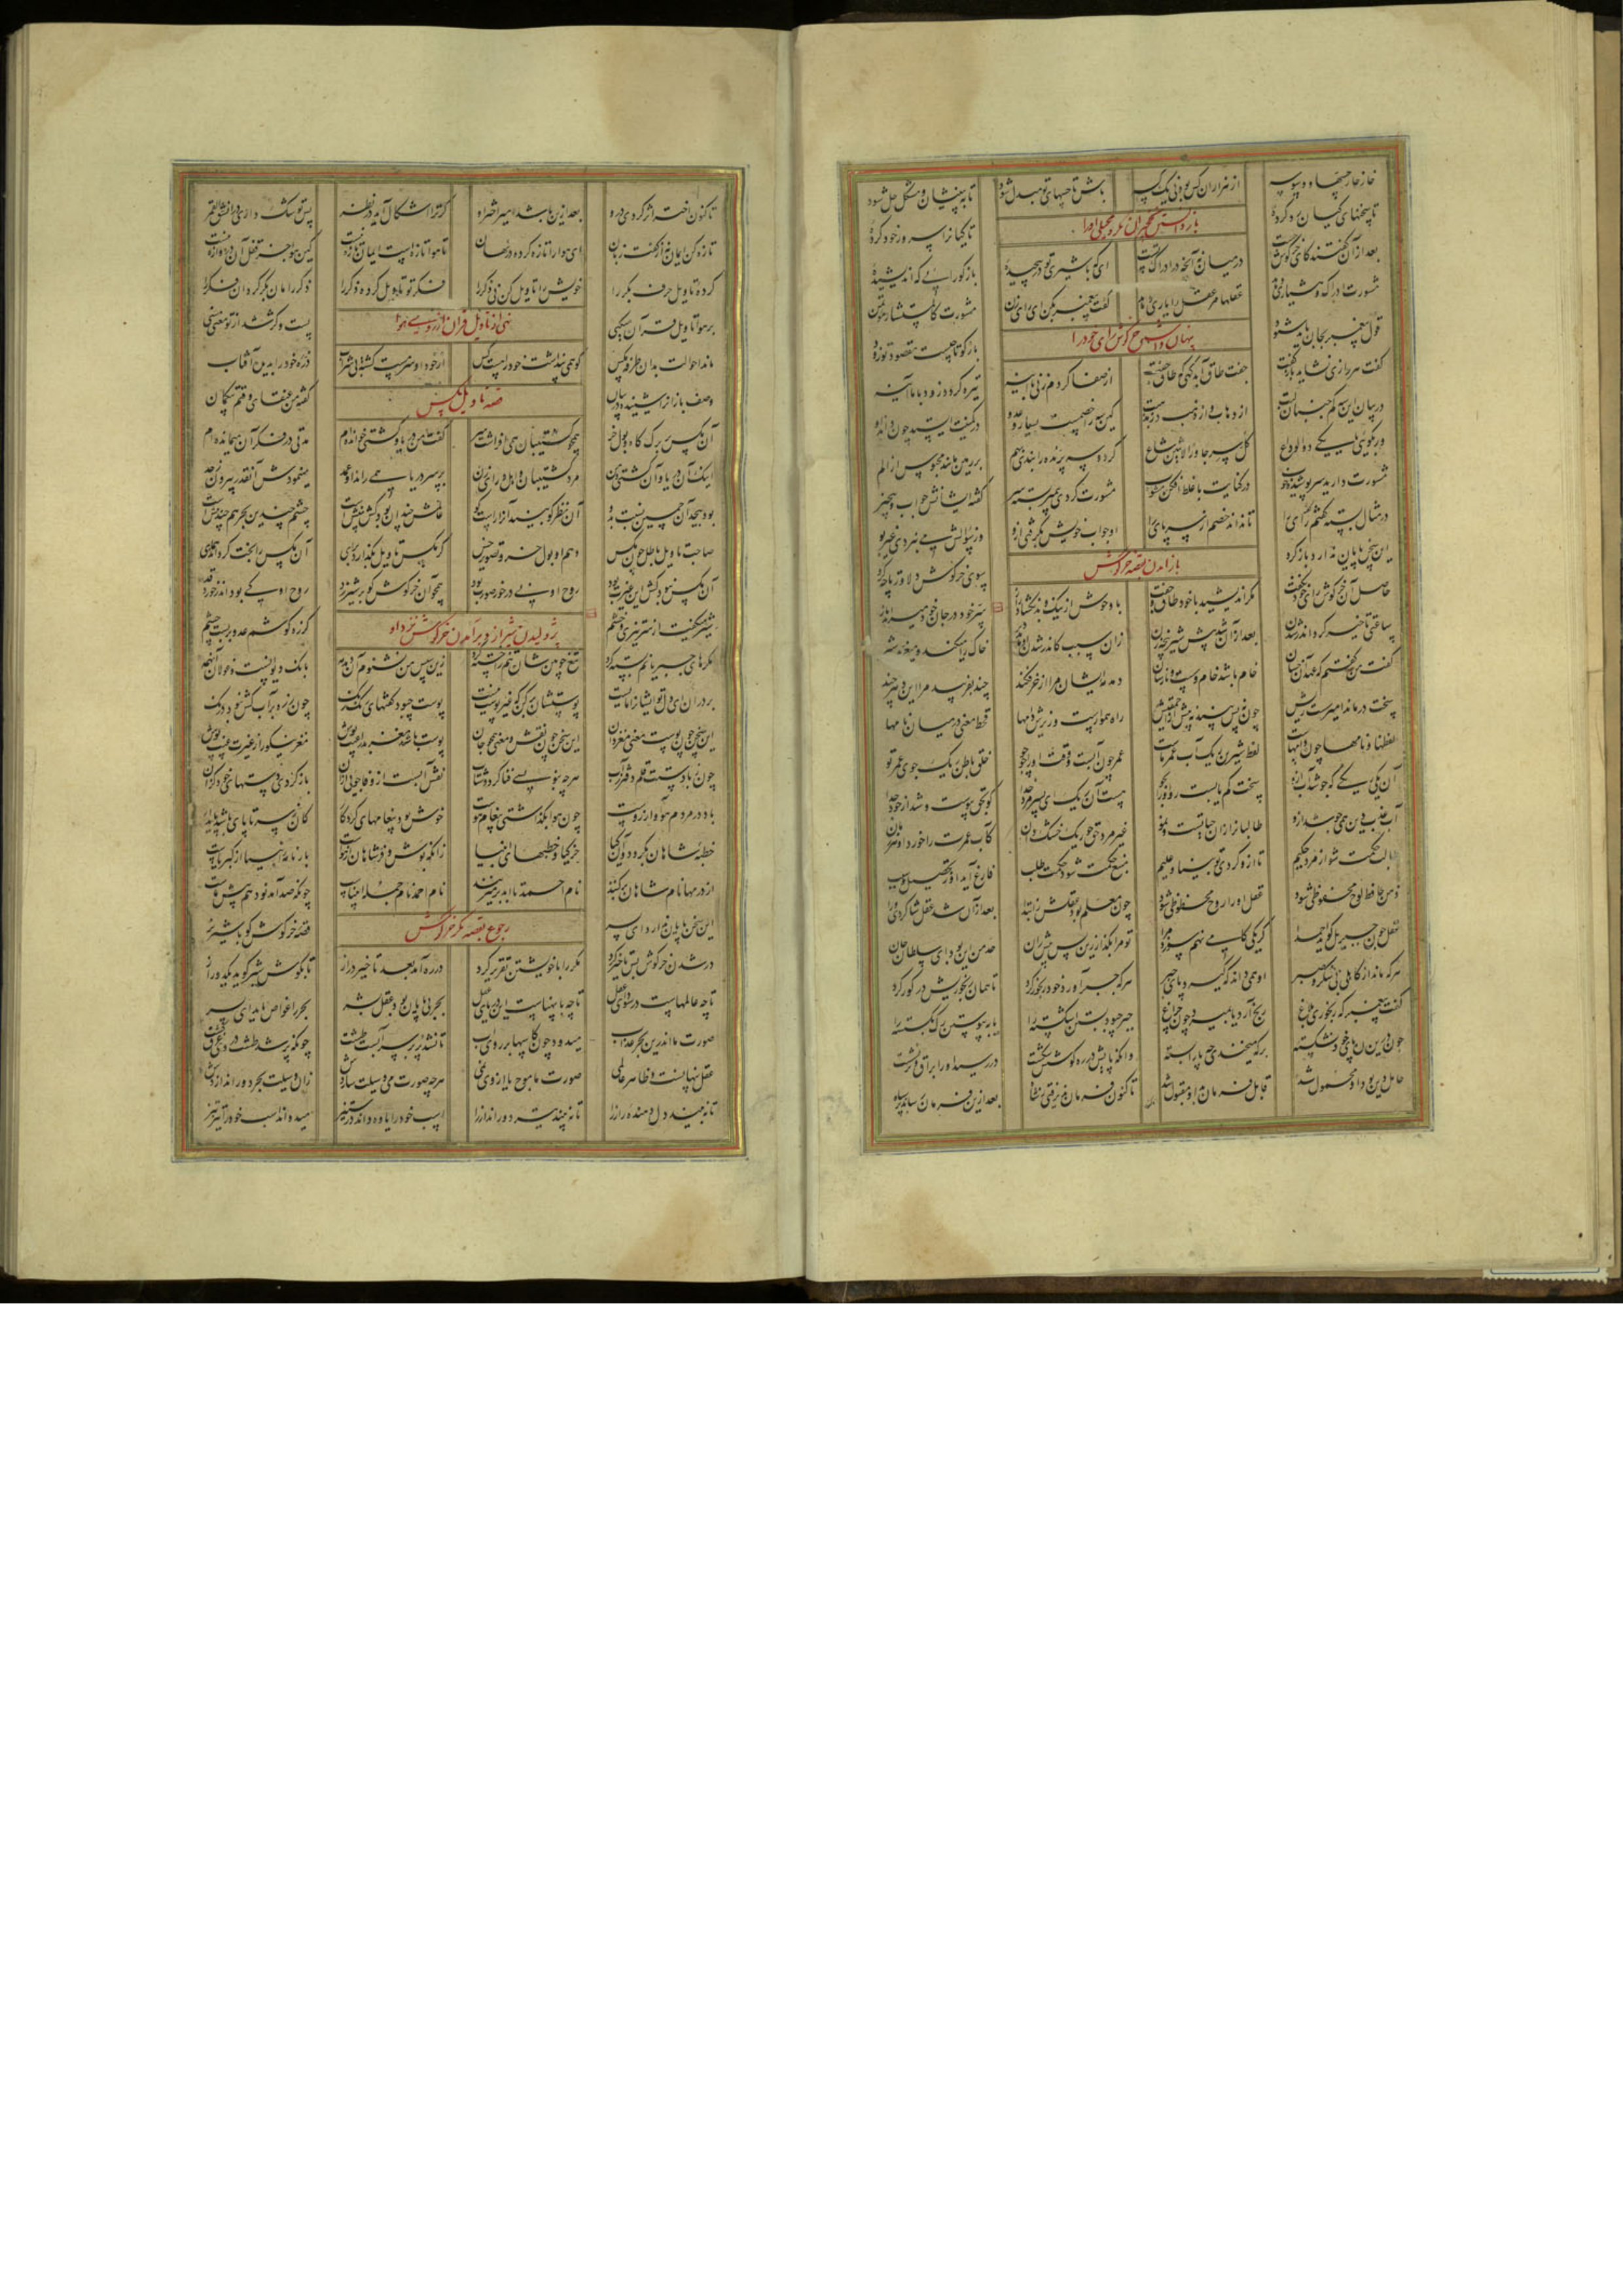 خارخار حسها و وسوسه از هزاران کس بود نی یک کسه باش تا حسهای تو مبدل شود تا ببینیشان و مشکل حل شود
تا سخنهای کیان رد کرده تا کیانرا سرور خود کرده
بعد از آن گفتند کای خرگوش چست در میان نه آنچه در ادراک تست ای که باشیری تو در پیچیده بازگو رایی که اندیشیده
مشورت ادراک و هشیاری دهد عقلها مر عقل را یاری دهد گفت پیغمبر بکن ای رای زن مشورت کالمستشار مؤتمن
قول پیغمبر بجان باید شنود بازگو تا چیست مقصود تو زود
پنهان داشتن خرگوش رای خود را
گفت هر رازی نشاید بازگفت جفت طاق آید گهی گه طاق جفت از صفا گر دم زنی با آینه تیره گردد زود با ما آینه
در بیان این سه کم جنبان لبت از ذهاب و از ذهب وز مذهبت کین سه را خصمست بسیار و عدو در کمینت ایستد چون داند او
ور بگویی با یکی دو الوداع کل سر جاوز الاثنین شاع گر دو سه پرنده را بندی بهم بر زمین مانند محبوس از الم
مشورت دارند سرپوشیده خوب در کنایت با غلط افکن مشوب مشورت کردی پیمبر بسته سر گفته ایشانش جواب و بیخبر
در مثال بسته گفتی رای را تا نداند خصم از سر پای را او جواب خویش بگرفتی ازو وز سؤالش می نبردی غیر بو
این سخن پایان ندارد باز گرد سوی خرگوش دلاور تا چه کرد
باز آمدن بقصه خرگوش
حاصل آن خرگوش رای خود نگفت مکر اندیشید با خود طاق و جفت با وحوش از نیک و بد نگشاد راز سر خود در جان خود میراند باز
ساعتی تاخیر کرد اندر شدن بعد از آن شد پیش شیر پنجه زن زان سبب کاندر شدن او ماند دیر خاک را میکند و میغرید شیر
گفت من گفتم که عهد آن خسان خام باشد خام و سست و نارسان دمدمه ایشان مرا از خر فکند چند بفریبد مرا این دهر چند
سخت درماند امیر سست ریش چون نه پس بیند نه پیش از احمقیش راه هموارست و زیرش دامها قحط معنی در میان نامها
لفظها و نامها چون دامهاست لفظ شیرین ریگ آب عمر ماست عمر چون آبست وقت او را چو جو خلق باطن ریگ جوی عمر تو
آن یکی ریگی که جوشد آب ازو سخت کم یابست رو آنرا بجو هست آن ریگ ای پسر مرد خدا کو بحق پیوست و شد از خود جدا
آب عذب دین همی جوشد ازو طالبانرا زان حیاتست و نمو غیر مرد حق چو ریگ خشک دان کاب عمرت را خورد او هر زمان
طالب حکمت شو از مرد حکیم تا ازو گردی تو بینا و علیم منبع حکمت شود حکمت طلب فارغ آید او ز تحصیل و سبب
لوح حافظ لوح محفوظی شود عقل او از روح محظوظی شود چون معلم بود عقلش ز ابتدا بعد از آن شد عقل شاگردی ورا
عقل چون جبریل گوید احمدا گر یکی گامی نهم سوزد مرا تو مرا بگذار زین پس پیش ران حد من این بود ای سلطان جان
هر که ماند از کاهلی بی شکر و صبر او همی داند که گیرد پای جبر هر که جبر آورد خود رنجور کرد تا همان رنجوریش در گور کرد
گفت پیغمبر که رنجوری بلاغ رنج آرد تا بمیرد چون چراغ جبر چبود بستن اشکسته را یا بپیوستن رگ بگسسته را
چون درین ره پای خود نشکسته بر که میخندی چه پا را بسته وانکه پایش در ره کوشش شکست در رسید او را براق و بر نشست
حامل دین بود او محمول شد قابل فرمان بد او مقبول شد تا کنون فرمان پذیرفتی ز شاه بعد ازین فرمان رساند بر سپاه
تا کنون اختر اثر کردی درو بعد ازین باشد امیر اختر او گر ترا اشکال آید در نظر پس تو شک داری در انشق القمر
تازه کن ایمان نه از گفت زبان ای هوا را تازه کرده در نهان تا هوا تازه است ایمان تازه نیست کین هوا جز قفل آن دروازه نیست
کرده تاویل حرف بکر را خویش را تاویل کن نی ذکر را فکر تو تاویل کرده ذکر را ذکر را مان بکر گردان فکر را
بر هوا تاویل قرآن میکنی پست و کژ شد از تو معنی سنی
ماند احوالت بدان طرفه مگس کو همی پنداشت خود را هست کس از خود او سرمست گشته بی شراب ذره خود را بدیده آفتاب
قصه تاویل مگس
وصف بازانرا شنیده در بیان گفته من عنقای وقتم بیگمان
آن مگس بر برگ کاه و بول خر همچو کشتیبان همی افراشت سر گفت من دریا و کشتی خوانده ام مدتی در فکر آن میمانده ام
اینک آن دریا و آن کشتی و من مرد کشتیبان و اهل و رای زن بر سر دریا همی راند او عمد مینمودش آنقدر بیرون ز حد
بود بیحد آن چمین نسبت بدو آن نظر کو بیند آنرا راست کو عالمش چندان بود کش بینشست چشم چندین بحر هم چندینشست
صاحب تاویل باطل چون مگس وهم او بول خر و تصویر خس گر مگس تاویل بگذارد برای آن مگس را بخت گرداند همای
آن مگس نبود کش این عبرت بود روح او نی در خور صورت بود همچو آن خرگوش کو بر شیر زد روح او کی بود اندر خورد قد
ژولیدن شیر از دیر آمدن خرگوش نزد او
شیر میگفت از سر تیزی و خشم کز ره گوشم عدو بر بست چشم
مکرهای جبریانم بسته کرد تیغ چوبین شان تنم را خسته کرد زین سپس من نشنوم آن دمدمه بانک دیوانست و غولان آن همه
بر دران ای دل تو ایشانرا مایست پوستشان بر کن که غیر پوست نیست پوست چبود گفتهای رنگ رنگ چون زره بر آب کش نبود درنگ
این سخن چون پوست معنی مغز دان این سخن چون نقش و معنی همچو جان پوست باشد مغز بد را عیب پوش مغز نیکو را ز غیرت غیب پوش
چون ز بادت قلم دفتر ز آب هر چه بنویسی فنا گردد شتاب نقش آبست ار وفا جویی از آن باز گردی دستهای خود گزان
باد در مردم هوا و آرزوست چون هوا بگذاشتی پیغام هوست خوش بود پیغامهای کردگار کان ز سر تا پای باشد پایدار
خطبه شاهان بگردد و آن کیا جز کیا و خطبهای انبیا زانکه بوش پادشاهان از هواست بارنامه انبیا از کبریاست
از درمها نام شاهان بر کنند نام احمد تا ابد بر میزنند نام احمد نام جمله انبیاست چونکه صد آمد نود هم پیش ماست
این سخن پایان ندارد ای پسر قصه خرگوش گو با شیر نر
رجوع بقصه مکر خرگوش
در شدن خرگوش بس تاخیر کرد مکر را با خویشتن تقریر کرد در ره آمد بعد تاخیر دراز تا بگوش شیر گوید یک دو راز
تا چه عالمهاست در سودای عقل تا چه با پهناست این دریای عقل بحر بی پایان بود عقل بشر بحر را غواص باید ای پسر
صورت ما اندرین بحر عذاب میدود چون کاسها بر روی آب تا نشد پر بر سر آبست طشت چونکه پر شد طشت در وی غرق گشت
عقل پنهانست و ظاهر عالمی صورت ما موج یا از وی نمی هر چه صورت می وسیلت سازدش زان وسیلت بحر دور اندازدش
تا نبیند دل دهنده راز را تا نبیند تیر دور انداز را اسب خود را یاوه داند وز ستیز میدواند اسب خود در راه تیز